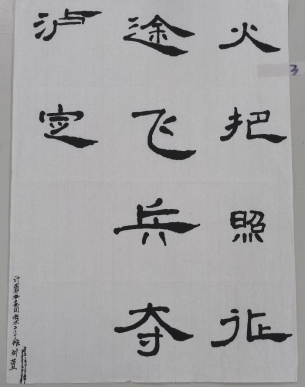 火把照征
途飞兵夺
泸定